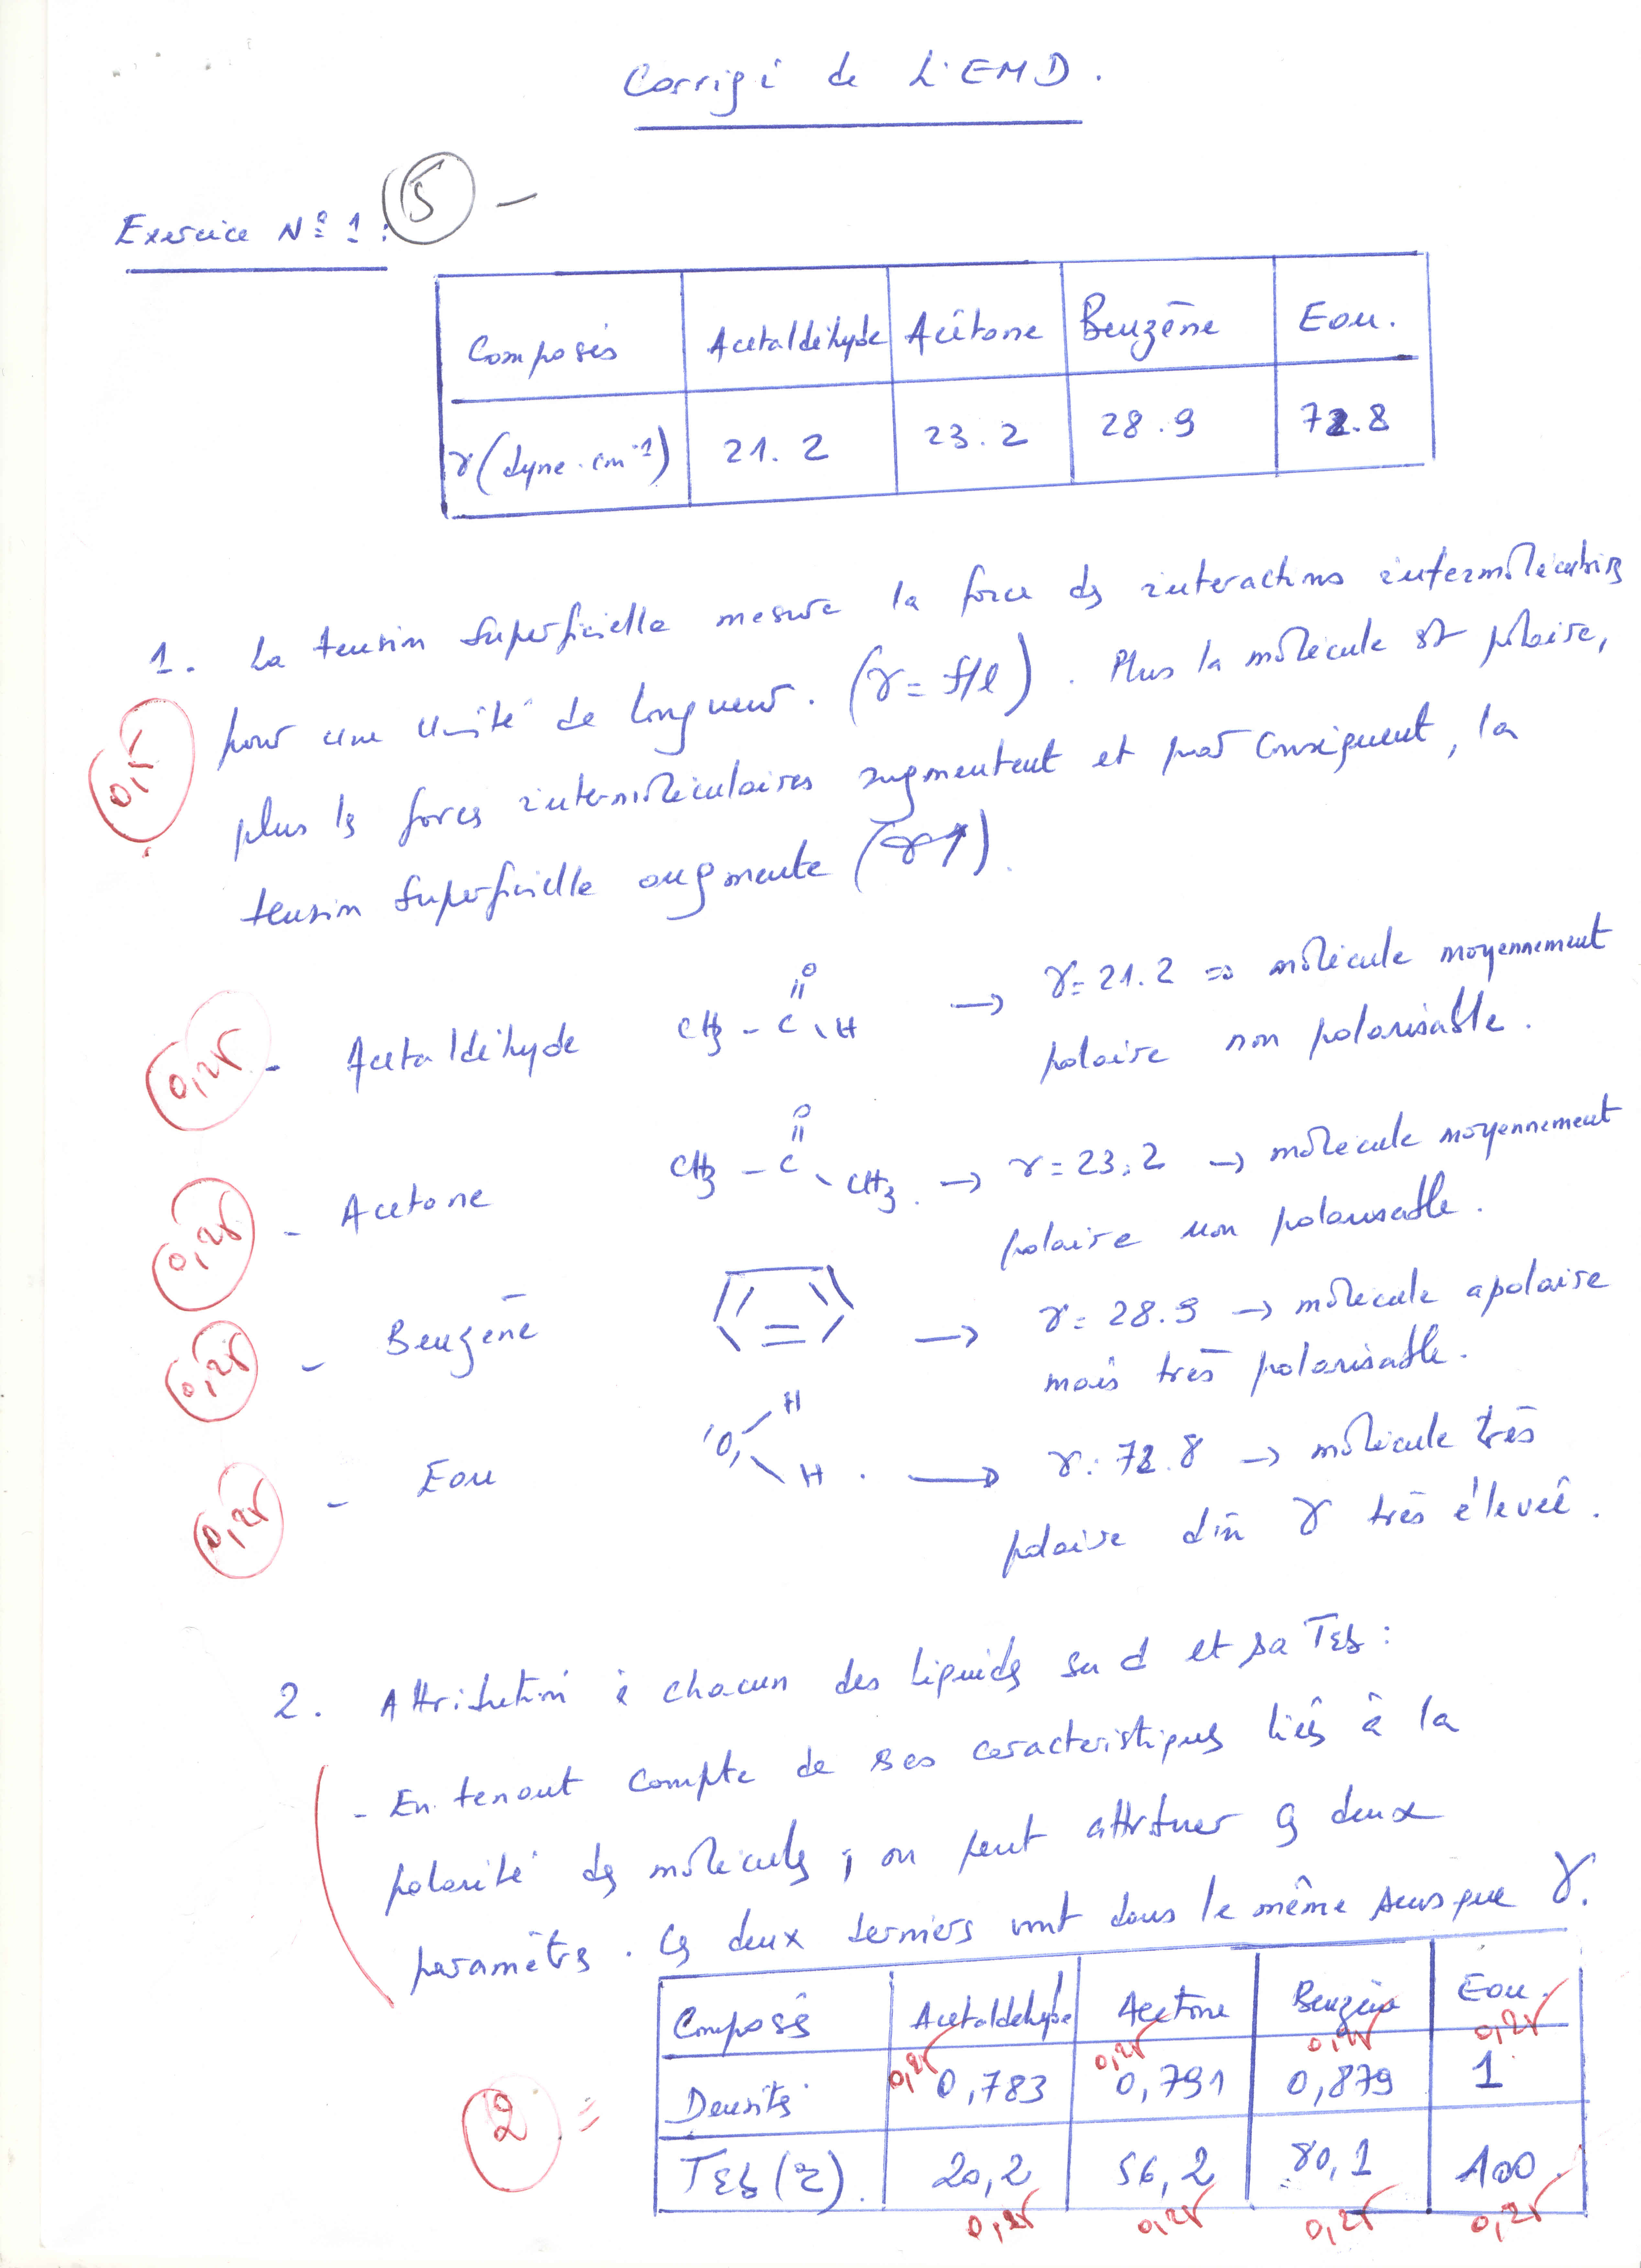 Corrigé de L'EMD.
Exercice N° 1 : 5 -
Composés Acétaldéhyde Acétone Benzène Eau.
γ (dyne.cm⁻¹) 21.2 23.2 28.9 72.8
1. La tension superficielle mesure la force des interactions intermoléculaires
pour une unité de longueur. (γ = f/l). Plus la molécule est polaire,
0,5
plus les forces intermoléculaires augmentent et par conséquent, la
tension superficielle augmente (γ↑).
0,25 - Acétaldéhyde CH3 - C - H → γ = 21.2 => molécule moyennement
O
polaire non polarisable.
0,25 - Acetone CH3 - C - CH3. → γ = 23.2 → molécule moyennement
O
polaire non polarisable.
0,25 - Benzène → γ = 28.9 → molécule apolaire
mais très polarisable.
0,25 - Eau O H H . → γ = 72.8 → molécule très
polaire d'où γ très élevée.
2. Attribution à chacun des liquides sa d et sa Téb :
- En tenant compte de ses caractéristiques liés à la
polarité des molécules, on peut attribuer ces deux
paramètres. Ces deux derniers vont dans le même sens que γ.
Composés Acétaldéhyde Acétone Benzène Eau.
0,25 0,25 0,25 0,25
2 = Densité 0,783 0,791 0,879 1
Téb (°C). 20,2 56,2 80,1 100.
0,25 0,25 0,25 0,25